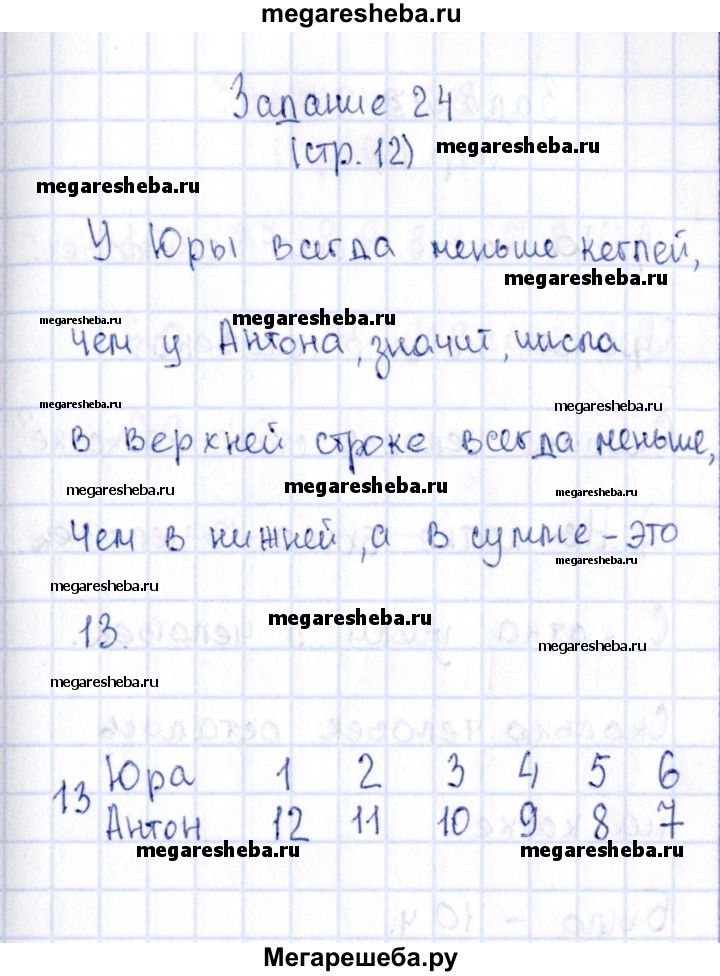 megaresheba.ru
Задание 24
(стр. 12) megaresheba.ru
megaresheba.ru
У Юры всегда меньше кеглей,
megaresheba.ru
megaresheba.ru megaresheba.ru
чем у Антона, значит, числа
megaresheba.ru megaresheba.ru
в верхней строке всегда меньше,
megaresheba.ru megaresheba.ru megaresheba.ru
чем в нижней, а в сумме - это
megaresheba.ru
megaresheba.ru
13. megaresheba.ru
megaresheba.ru
megaresheba.ru
13 Юра 1 2 3 4 5 6
Антон 12 11 10 9 8 7
megaresheba.ru megaresheba.ru
Мегарешеба.ру